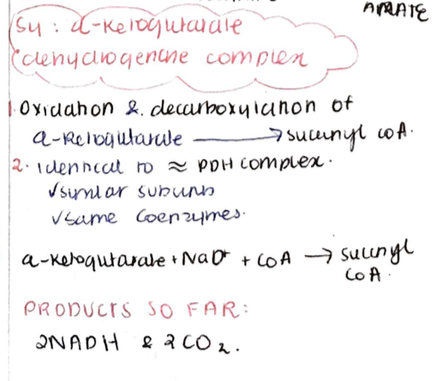 APRATE
S4: α-Ketoglutarate
dehydrogenase complex
1. Oxidation & decarboxylation of
α-Ketoglutarate → succinyl coA.
2. identical to ≈ PDH complex.
✓similar subunits
✓same coenzymes.
α-Ketoglutarate + NAD⁺ + COA → succinyl
COA.
PRODUCTS SO FAR:
2NADH & 2CO₂.